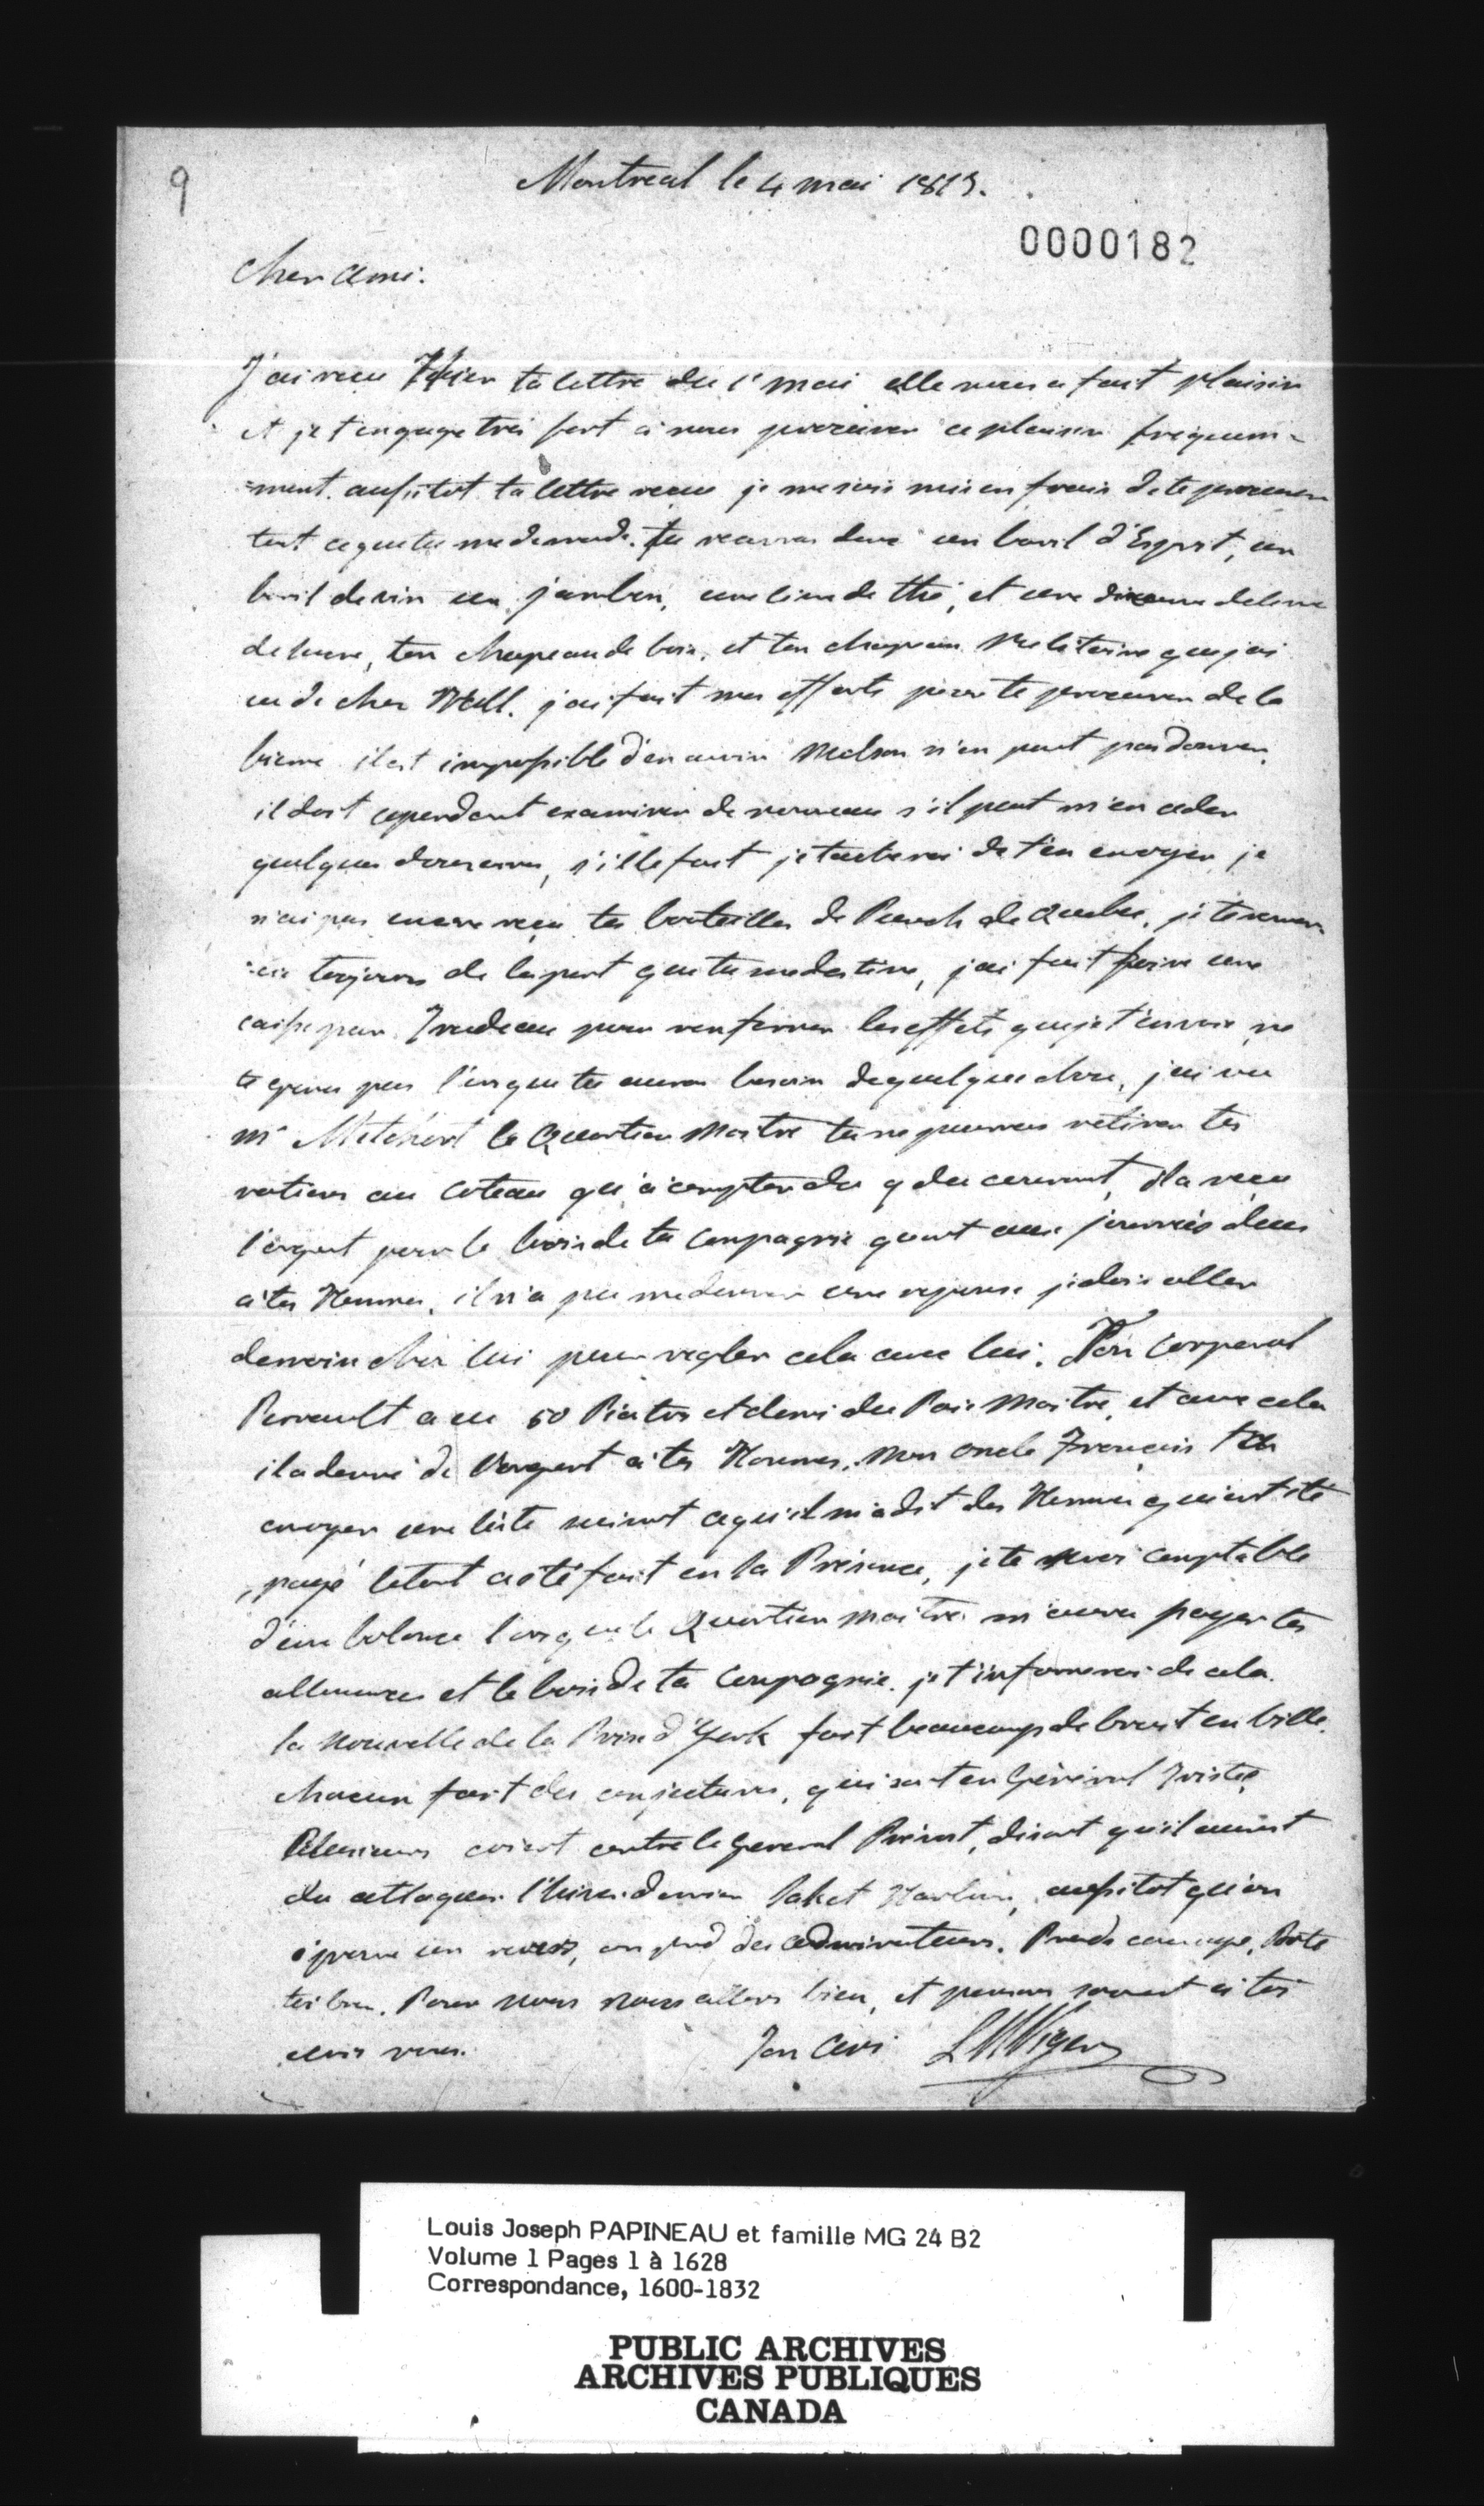 9
Montreal le 4 mai 1813.
0000182
Cher Ami.
J'ai recu Hier ta lettre du 1r mai elle nous a fait plaisir
et je t'engage tres fort à nous procurer ce plaisir frequem=
=ment. aussitot ta lettre recue je me suis mis en frais de te procurer
tout ce que tu me demande. tu recevras donc un baril d'Esprit, un
baril de vin un jambon, une livre de thé, et une
de sucre, ton chapeau de bois, et ton chapeau Militaire que j'ai
eu de chez Well. j'ai fait mes efforts pour te procurer de la
bierre il est impossible d'en avoir Molson n'en peut pas donner.
il doit cependant examiner de nouveau s'il peut m'en ceder
quelques douzaines, s'il le fait je tacherai de t'en envoyer, je
n'ai pas encore reçu tes bouteilles de Punch de Quebec, je te remer=
=cie toujours de la part que tu me destine, j'ai fait faire une
caisse par Trudeau pour renfermer les effets que je t'envoie, ne
te gene pas lorsque tu auras besoin de quelque chose, j'ai vu
mr le Quartier Maitre tu ne pourras retirer tes
rations au Coteau qu'à compter du 9 du courant, il a reçu
l'argent pour le bois de ta Compagnie quant aux journées dues
à tes Hommes, il n'a pu me donner une reponse je dois aller
demain chez lui pour regler cela avec lui. Ton Corporal
Perrault a eu 50 Piastres et demi du Paie Maitre, et avec cela
il a donné de l'argent à tes Hommes, Mon oncle François t'a
envoyer une liste suivant ce qu'il m'a dit des Hommes qui ont été
payé le tout a été fait en sa Présence, je te serai comptable
d'une balance lorsque le Quartier Maitre m'aura payer tes
allouances et le bois de ta Compagnie. je t'informerai de cela.
la nouvelle de la Prise d'York fait beaucoup de bruit en Ville.
chacun fait des conjectures, qui sont en Général Triste,
Plusieurs crient contre le General Prévost, disant qu'il auroit
du attaquer l'hiver dernier Saket Harbour, aussitot qu'on
éprouve un revers, on perd des admirateurs. Prends courage, Porte
toi bien. Pour nous nous allons bien, et pensons souvent à toi
Ton Ami LMViger
Louis Joseph PAPINEAU et famille MG 24 B2
Volume 1 Pages 1 à 1628
Correspondance, 1600-1832
PUBLIC ARCHIVES
ARCHIVES PUBLIQUES
CANADA